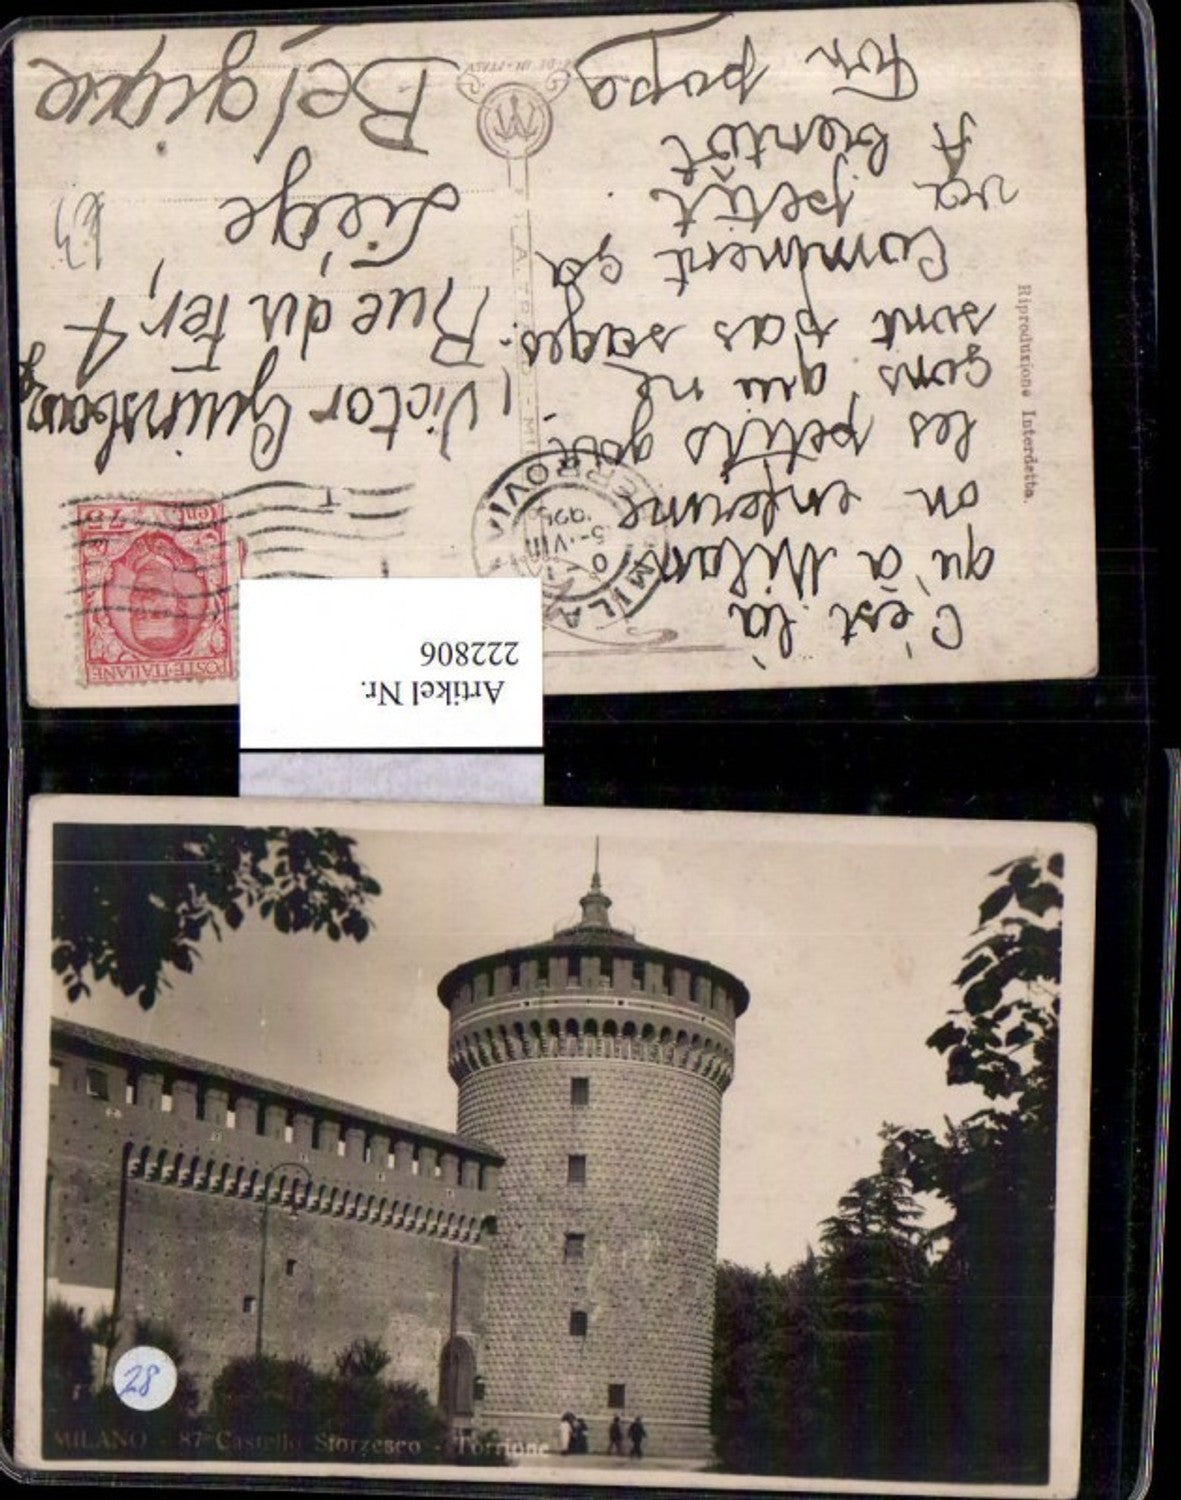 C'est là
qu'à Milan
on enferme
les petits gar-
çons qui ne
sont pas sages.
Comment ça
va petit
A bientôt
Ton papa
Victor
Rue du Fer, 4
Liège
Belgique
Riproduzione Interdetta.
POSTE·ITALIANE
Cent. 75
MILA
FERROVIA
Artikel Nr.
222806
28
MILANO - 87 Castello Sforzesco - Torrione